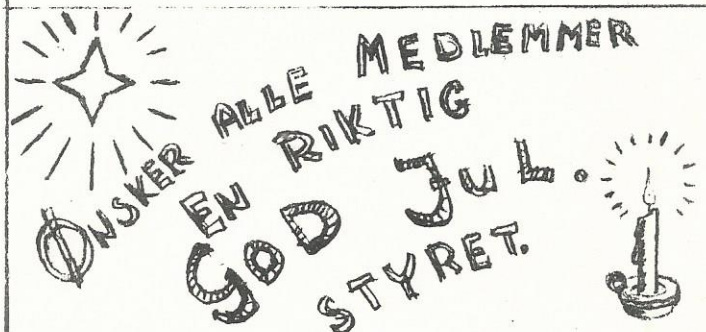 ØNSKER ALLE MEDLEMMER
EN RIKTIG
GOD JUL.
STYRET.